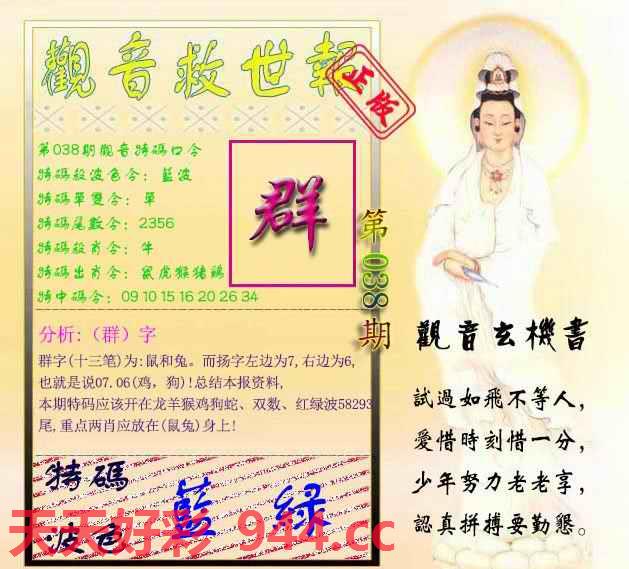 觀音救世報
正版
第038期觀音特碼口令
特碼殺波色令：藍波
特碼單雙令：單
特碼尾數令：2356
特碼殺肖令：牛
特碼出肖令：鼠虎猴猪鷄
特中碼令：09 10 15 16 20 26 34
群
第038期
分析:（群）字
群字(十三笔)为:鼠和兔。而扬字左边为7,右边为6,
也就是说07.06(鸡，狗)!总结本报资料,
本期特码应该开在龙羊猴鸡狗蛇、双数、红绿波58293
尾,重点两肖应放在(鼠兔)身上!
特碼
波色
藍 綠
觀音玄機書
試過如飛不等人，
愛惜時刻惜一分，
少年努力老老享，
認真拼搏要勤懇。
天天好彩 944.cc